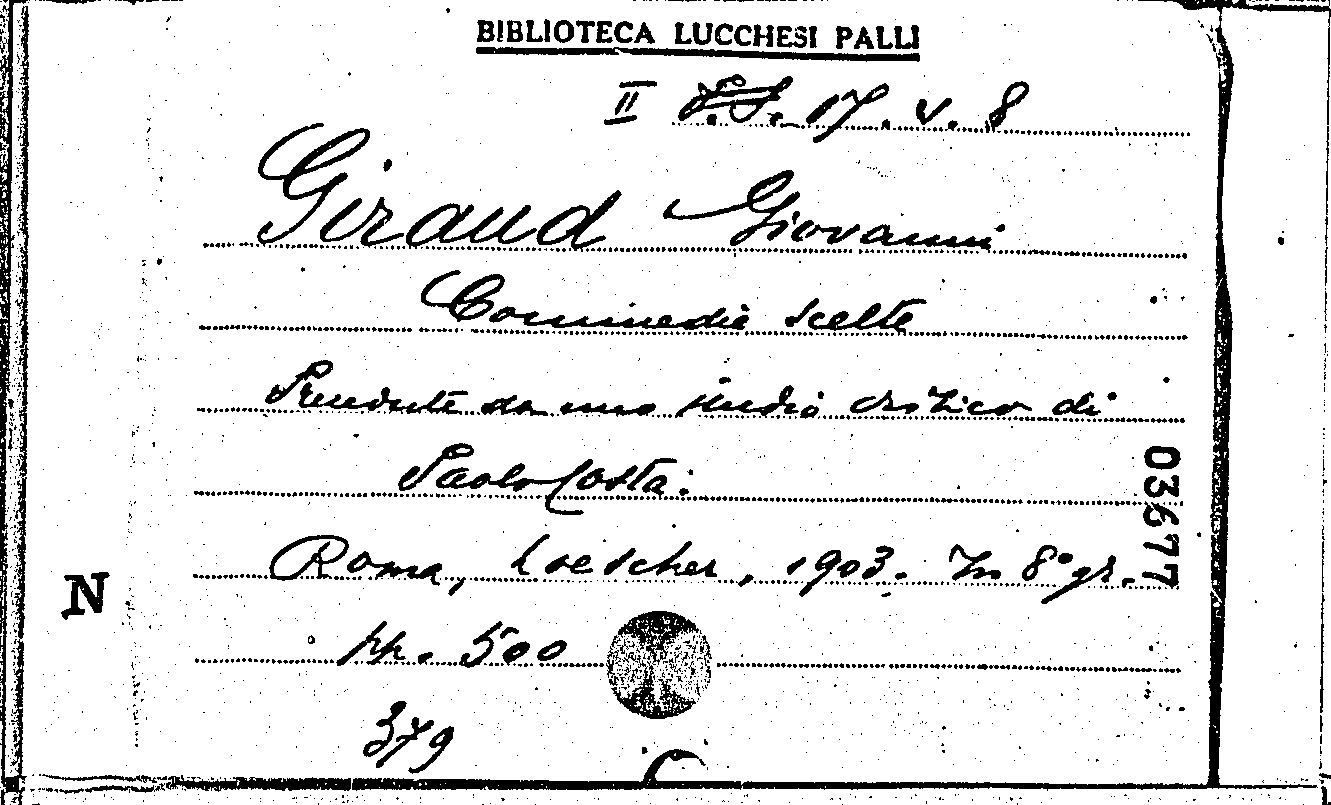 BIBLIOTECA LUCCHESI PALLI
II 17. V. 8
Giraud Giovanni
Commedie scelte
Precedute da uno studio critico di
Paolo Costa.
Roma, Loescher, 1903. In 8° gr.
pp. 500
379
03677
N